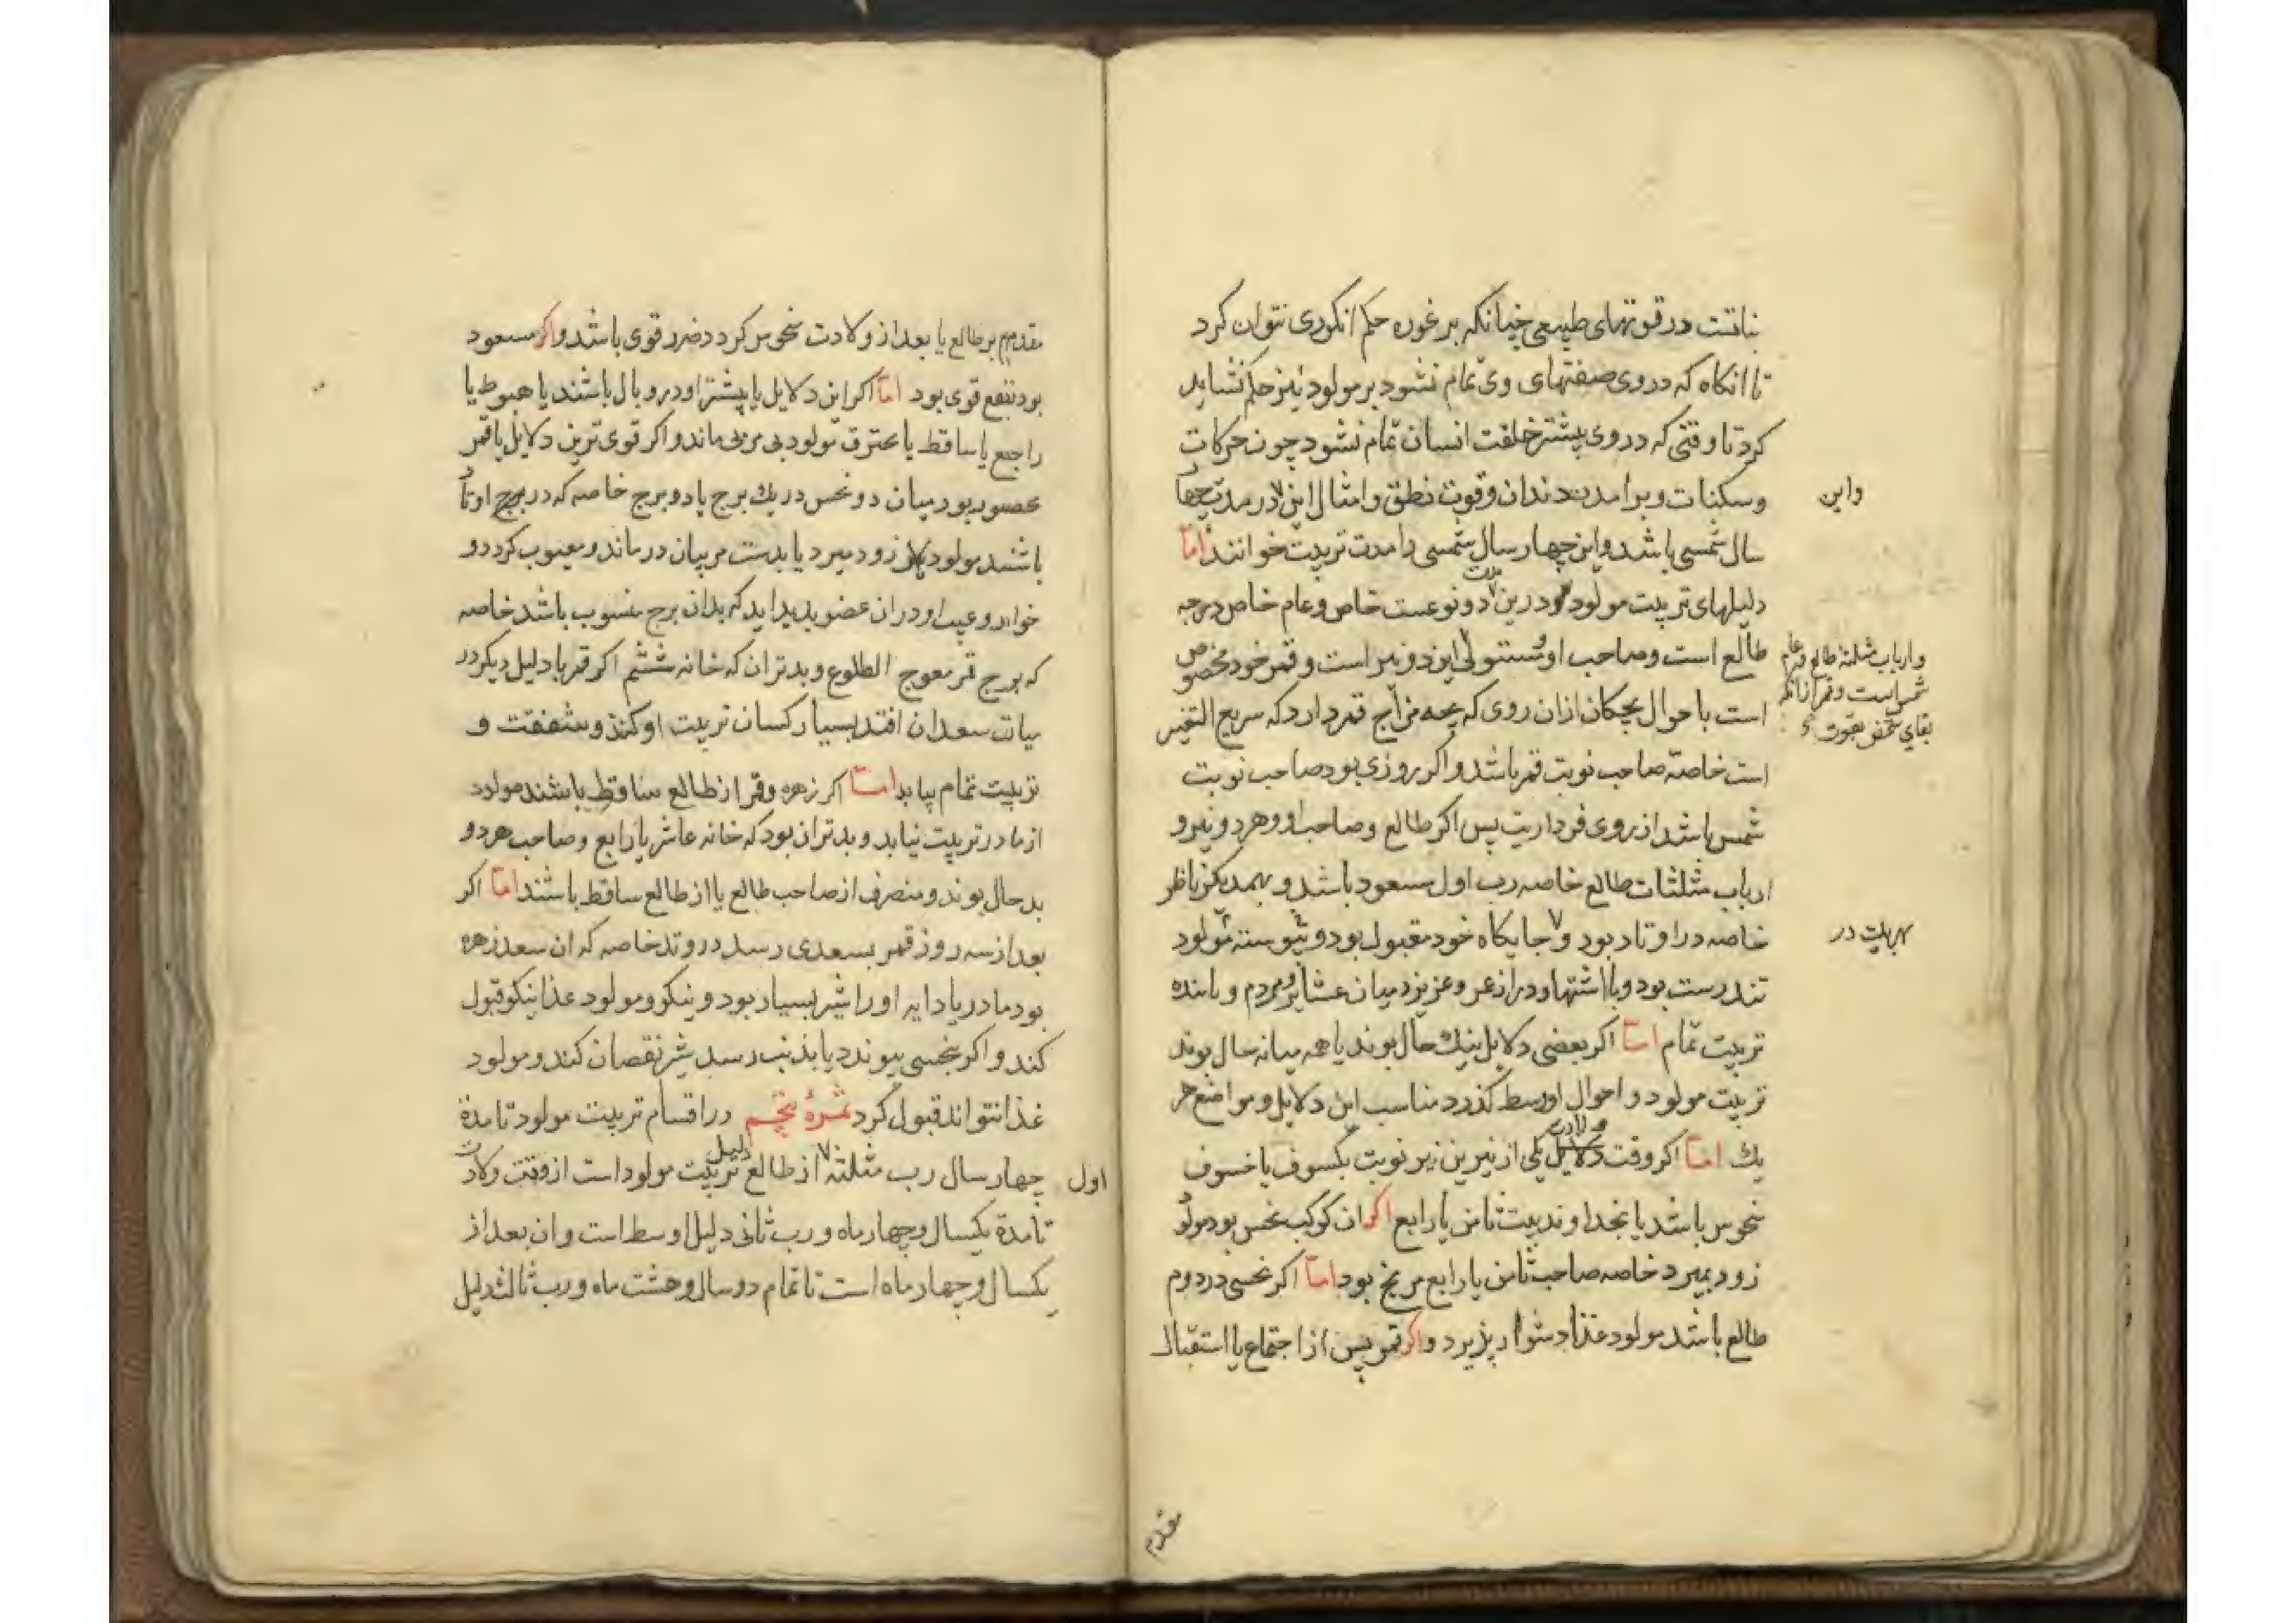 نباتست در قوتهای طبیعی چنانکه بر غوره حکم انکوری نتوان کرد
تا انکاه که در وی صفتهای وی تمام نشود بر مولود نیز حکم نشاید
کرد تا وقتی که در وی بیشتر خلقت انسان تمام نشود چون حرکات
وسکنات و برامدن دندان وقوت نطق وامثال این در مدت چهار
واین
سال شمسی باشد واین چهار سال شمسی را مدت تربیت خوانند اما
دلیلهای تربیت مولود درین مدت دو نوعست خاص وعام خاص درجه
طالع است وصاحب او ومستولی این دو نیز است وقمر خود مخصوص
وارباب مثلثه طالع قمر عام
شمس است وقمر زانکه
بقای شخص بقوت
است باحوال بچکان ازان روی که بچه مزاج قمر دارد که سریع التغیر
است خاصه صاحب نوبت قمر باشد واکر روزی بود صاحب نوبت
شمس باشد از روی فرداریت پس اکر طالع وصاحب او وهر دو نیر و
ارباب مثلثات طالع خاصه رب اول مسعود باشد و بهمدیکر ناظر
خاصه در اوتاد بود و جایکاه خود مقبول بود و پیوسته مولود
تندرست بود وبا اشتها ودراز عمر وعزیز میان عشایر ومردم ویابنده
تربیت تمام اما اکر بعضی دلایل نیک حال بوند یا همه میانه حال بوند
تربیت مولود واحوال اوسط کذرد مناسب این دلایل ومواضع هر
یک اما اکر وقت ولادت یکی از نیرین نیر نوبت بکسوف یا خسوف
منحوس باشد یا بخداوند بیت ثامن یا رابع اکر ان کوکب نحس بود مولود
زود بمیرد خاصه صاحب ثامن یا رابع مریخ بود اما اکر نحسی در دوم
طالع باشد مولود غذا دشوار پذیرد واکر قمر پس از اجتماع یا استقبال
مقدم
مقدم بر طالع یا بعد از ولادت منحوس کردد ضرر قوی باشد واکر مسعود
بود نفع قوی بود اما اکر این دلایل یا بیشتر او در وبال باشند یا هبوط یا
راجع یا ساقط یا محترق مولود بی مربی ماند واکر قوی ترین دلایل یا قمر
محصور بود میان دو نحس در یک برج یا دو برج خاصه که در برج اوتاد
باشند مولود زود میرد یا بدست مربیان درماند ومعیوب کردد و
خوار وعیب او دران عضو پدید اید که بدان برج منسوب باشد خاصه
که برج قمر معوج الطلوع وبدتر ان که خانه ششم اکر قمر با دلیل دیکر در
میان سعدان افتد بسیار کسان تربیت او کنند وشفقت و
تربیت تمام بیابد اما اکر زهره وقمر از طالع ساقط باشند مولود
از مادر تربیت نیابد وبدتر ان بود که خانه عاشر یا رابع وصاحب هر دو
بد حال بوند ومنصرف از صاحب طالع یا از طالع ساقط باشند اما اکر
بعد از سه روز قمر بسعدی رسد در وتد خاصه که ان سعد زهره
بود مادر یا دایه او را شیر بسیار بود ونیکو ومولود غذا نیکو قبول
کند واکر بنحسی پیوندد یا بذنب رسد شیر نقصان کند ومولود
غذا نتواند قبول کرد ثمرهٔ پنجم در اقسام تربیت مولود تا مدة
چهار سال رب مثلثه اول از طالع دلیل تربیت مولود است از وقت ولادت
تا مدة یکسال وچهار ماه ورب ثانی دلیل اوسط است وان بعد از
یکسال وچهار ماه است تا تمام دو سال وهشت ماه ورب ثالث دلیل